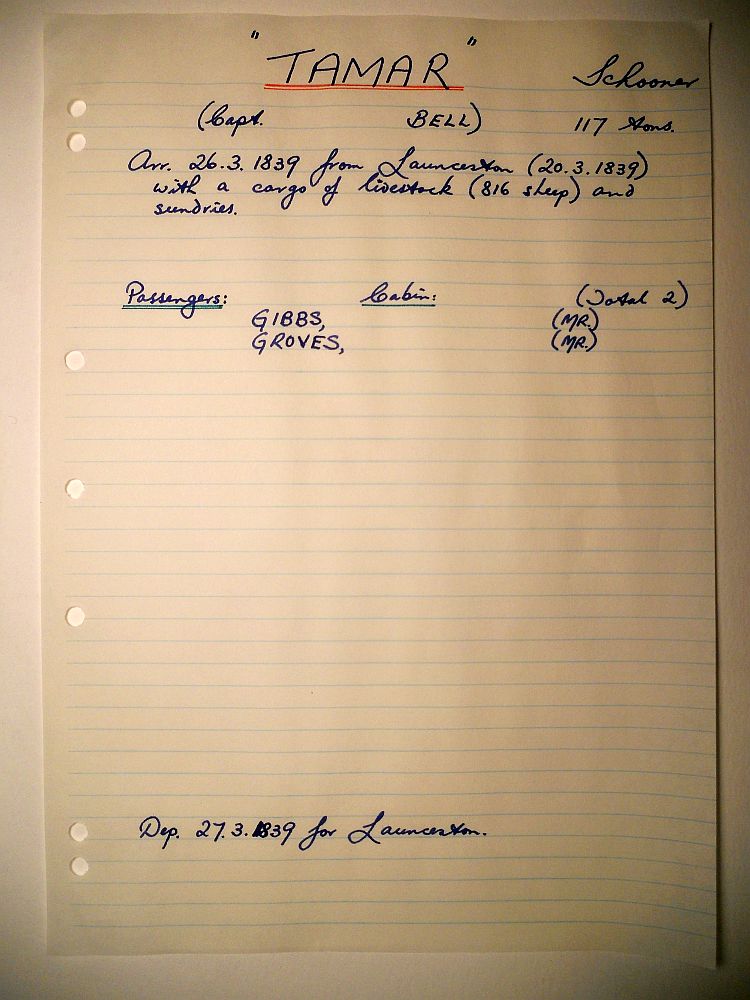 "TAMAR" Schooner
(Capt. BELL) 117 tons.
Arr. 26.3.1839 from Launceston (20.3.1839)
with a cargo of livestock (816 sheep) and
sundries.
Passengers: Cabin: (Total 2)
GIBBS, (MR.)
GROVES, (MR.)
Dep. 27.3.1839 for Launceston.